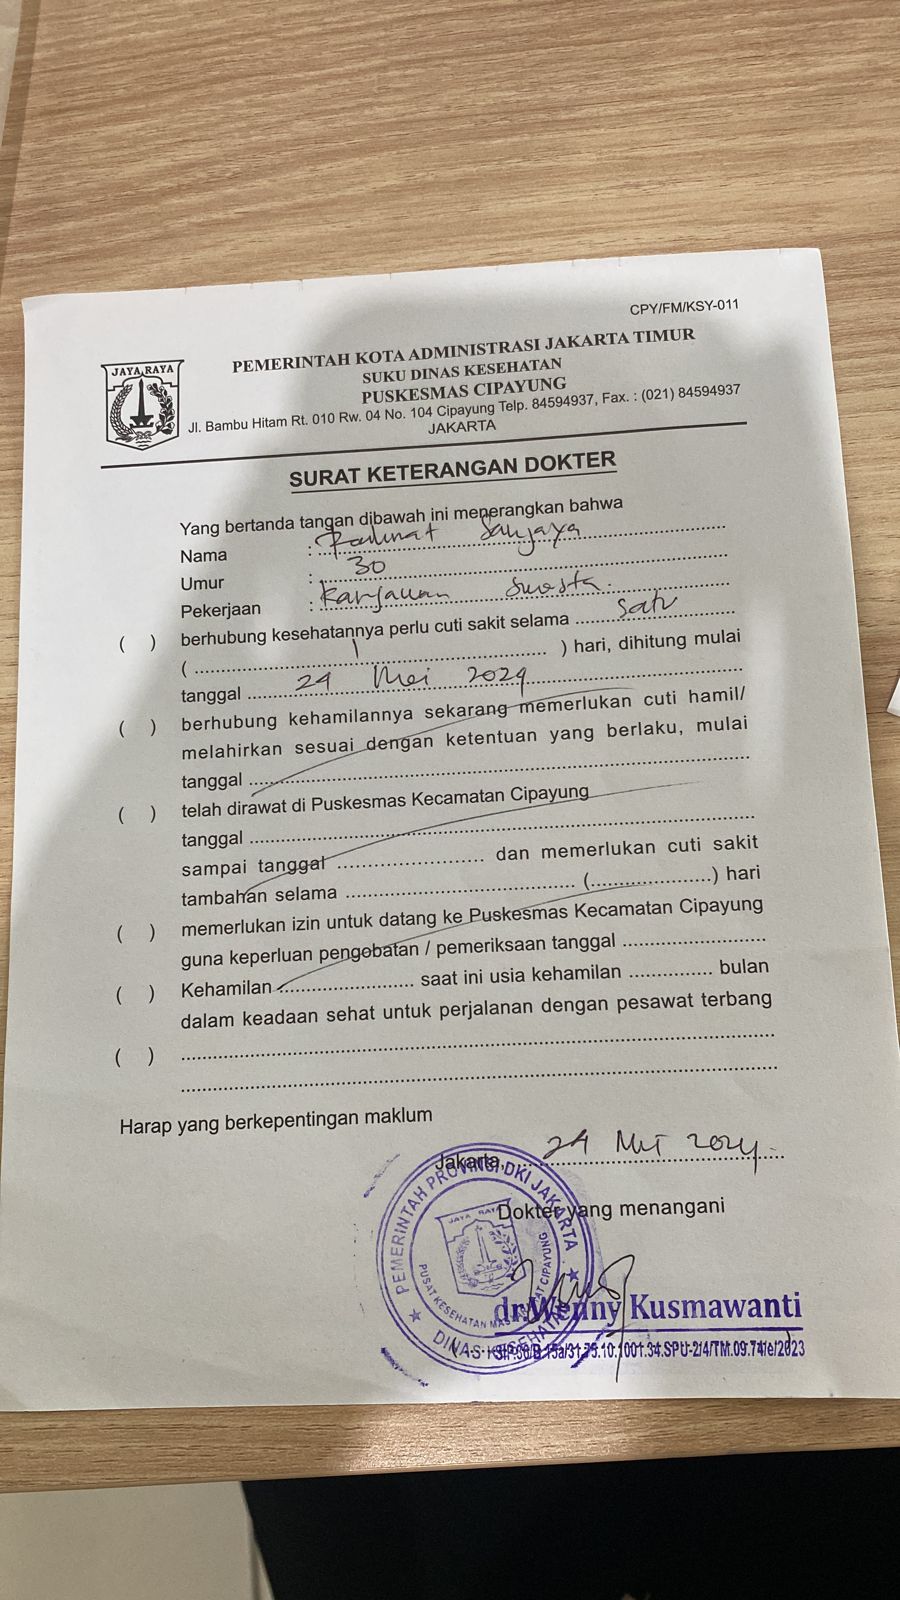 CPY/FM/KSY-011
JAYA RAYA
PEMERINTAH KOTA ADMINISTRASI JAKARTA TIMUR
SUKU DINAS KESEHATAN
PUSKESMAS CIPAYUNG
Jl. Bambu Hitam Rt. 010 Rw. 04 No. 104 Cipayung Telp. 84594937, Fax. : (021) 84594937
JAKARTA
SURAT KETERANGAN DOKTER
Yang bertanda tangan dibawah ini menerangkan bahwa
Nama : Rahmat Sanjaya
Umur : 30
Pekerjaan : Karyawan Swasta
( ) berhubung kesehatannya perlu cuti sakit selama satu
( 1 ) hari, dihitung mulai
tanggal 24 Mei 2024
( ) berhubung kehamilannya sekarang memerlukan cuti hamil/
melahirkan sesuai dengan ketentuan yang berlaku, mulai
tanggal
( ) telah dirawat di Puskesmas Kecamatan Cipayung
tanggal
sampai tanggal ........................ dan memerlukan cuti sakit
tambahan selama ........................ (.....................) hari
( ) memerlukan izin untuk datang ke Puskesmas Kecamatan Cipayung
guna keperluan pengobatan / pemeriksaan tanggal ........................
( ) Kehamilan ........................ saat ini usia kehamilan ............... bulan
dalam keadaan sehat untuk perjalanan dengan pesawat terbang
( )
Harap yang berkepentingan maklum
Jakarta, 24 Mei 2024
PEMERINTAH PROVINSI DKI JAKARTA
JAYA RAYA
PUSAT KESEHATAN MASYARAKAT CIPAYUNG
DINAS KESEHATAN
Dokter yang menangani
dr.Wenny Kusmawanti